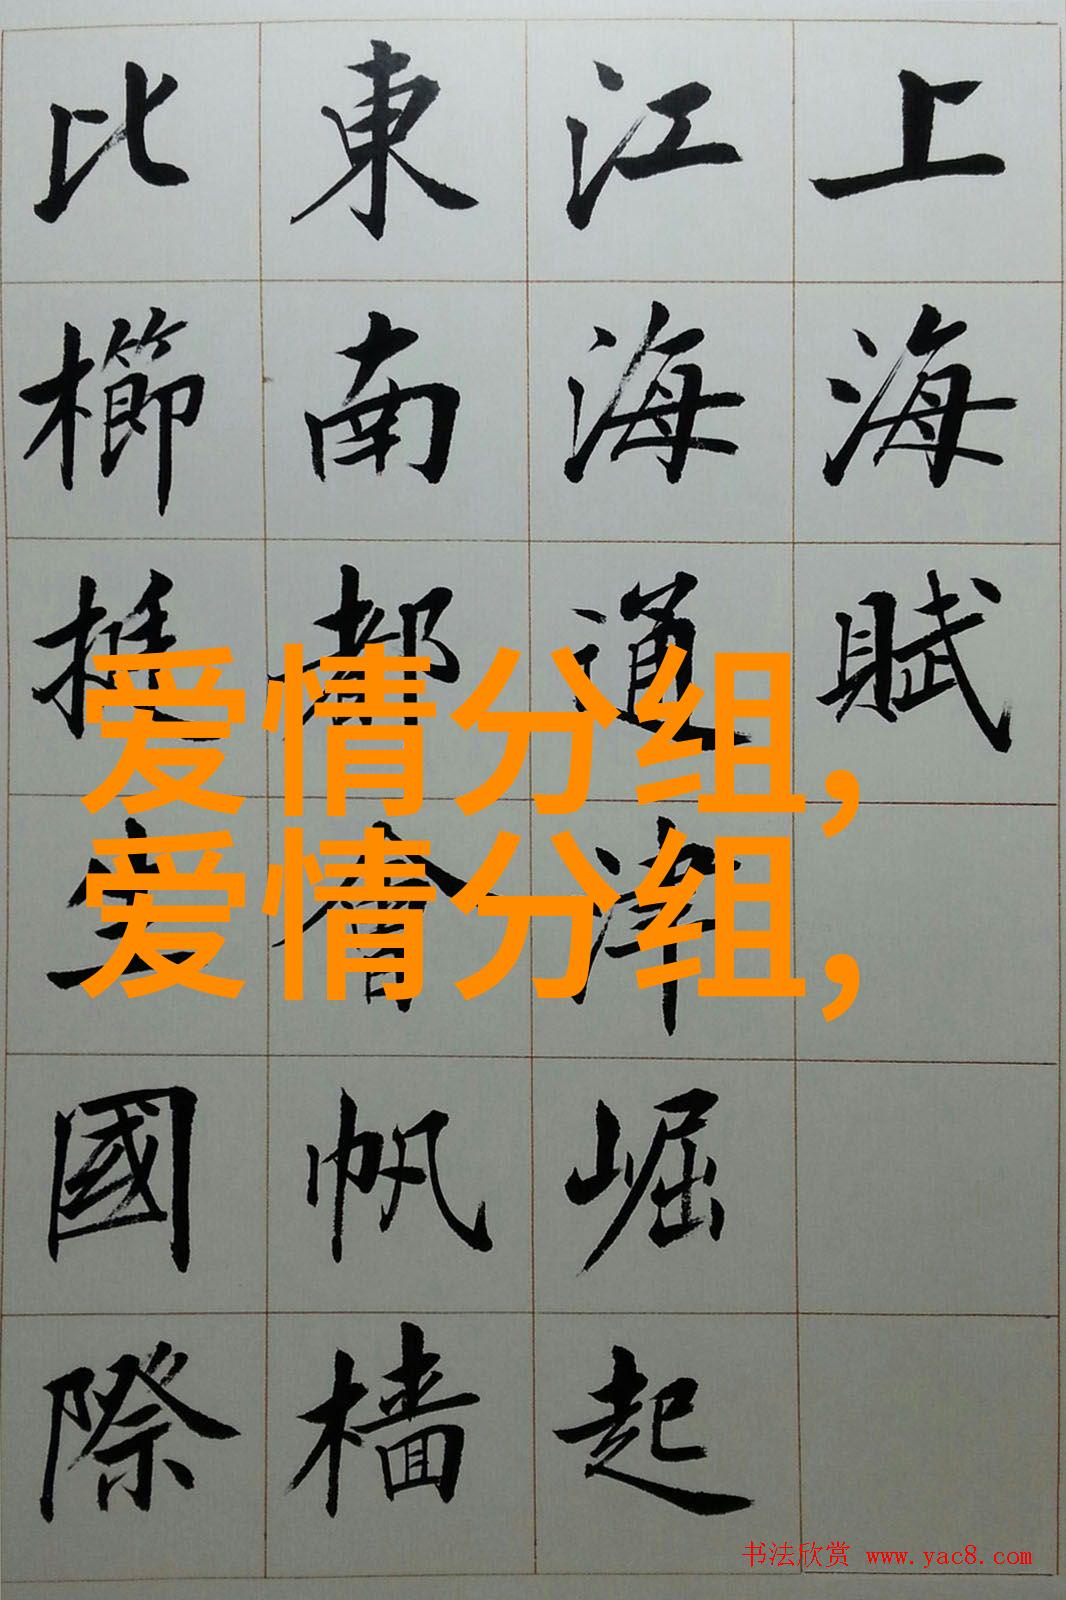 上海賦
江海通津崛起
東南都會帆檣
比櫛挺立國際
爱情分组,
爱情分组,
书法欣赏 www.yac8.com